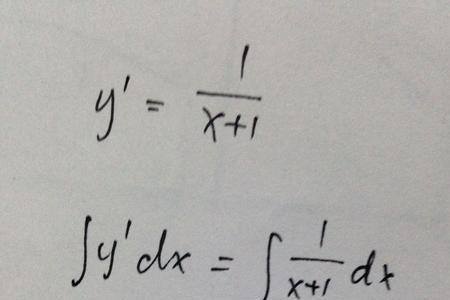 y' = 1/(x+1)
∫y'dx = ∫ 1/(x+1) dx